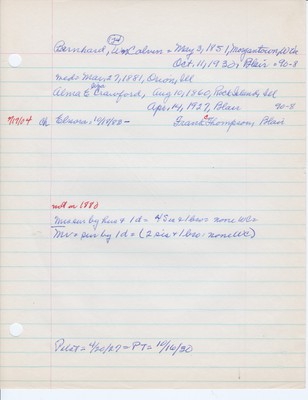 24
Bernhard, Wm Calvin = May 3, 1851, Morgantown, W Va
Oct. 11, 1930, Blair = 90-8
mrd: May 27, 1881, Orion, Ill
Alma E Crawford, Aug 10, 1860, Rock Island, Ill
Apr 14, 1927, Blair 90-8
ch Elnora, Frank C Thompson, Blair
not in 1880
Mrs sur by hus & 1 d = 4 sis & 1 bro: none WC
Mr = sur by 1 d = (2 sis & 1 bro: none WC)
Pilot = 4/20/27 = PT = 10/16/30